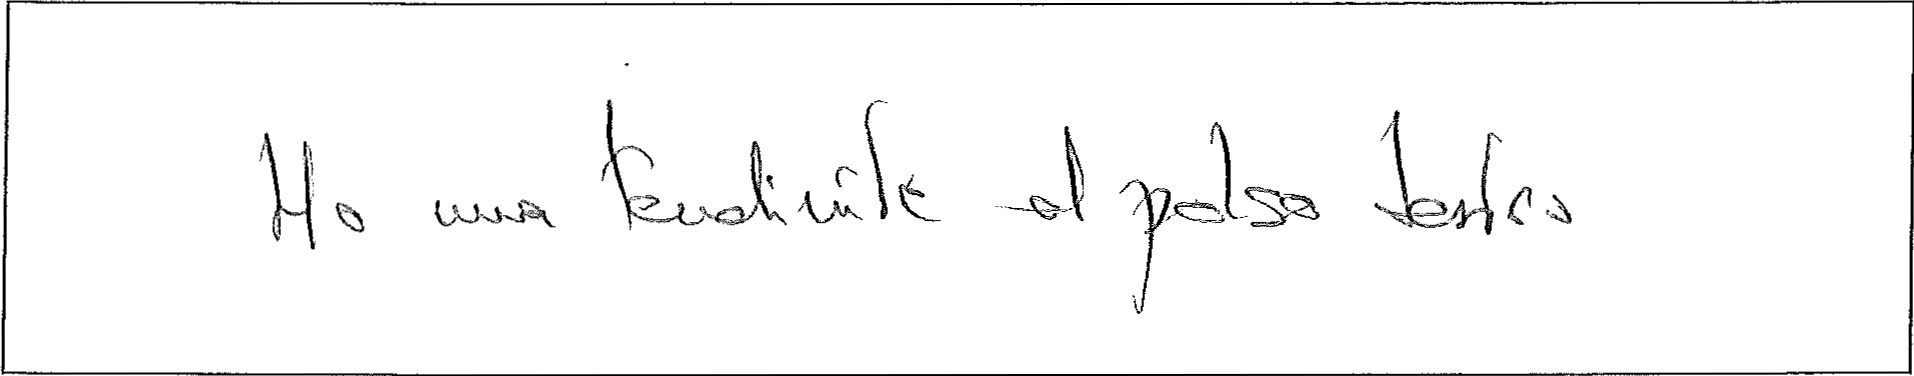 Ho una tendinite al polso destro